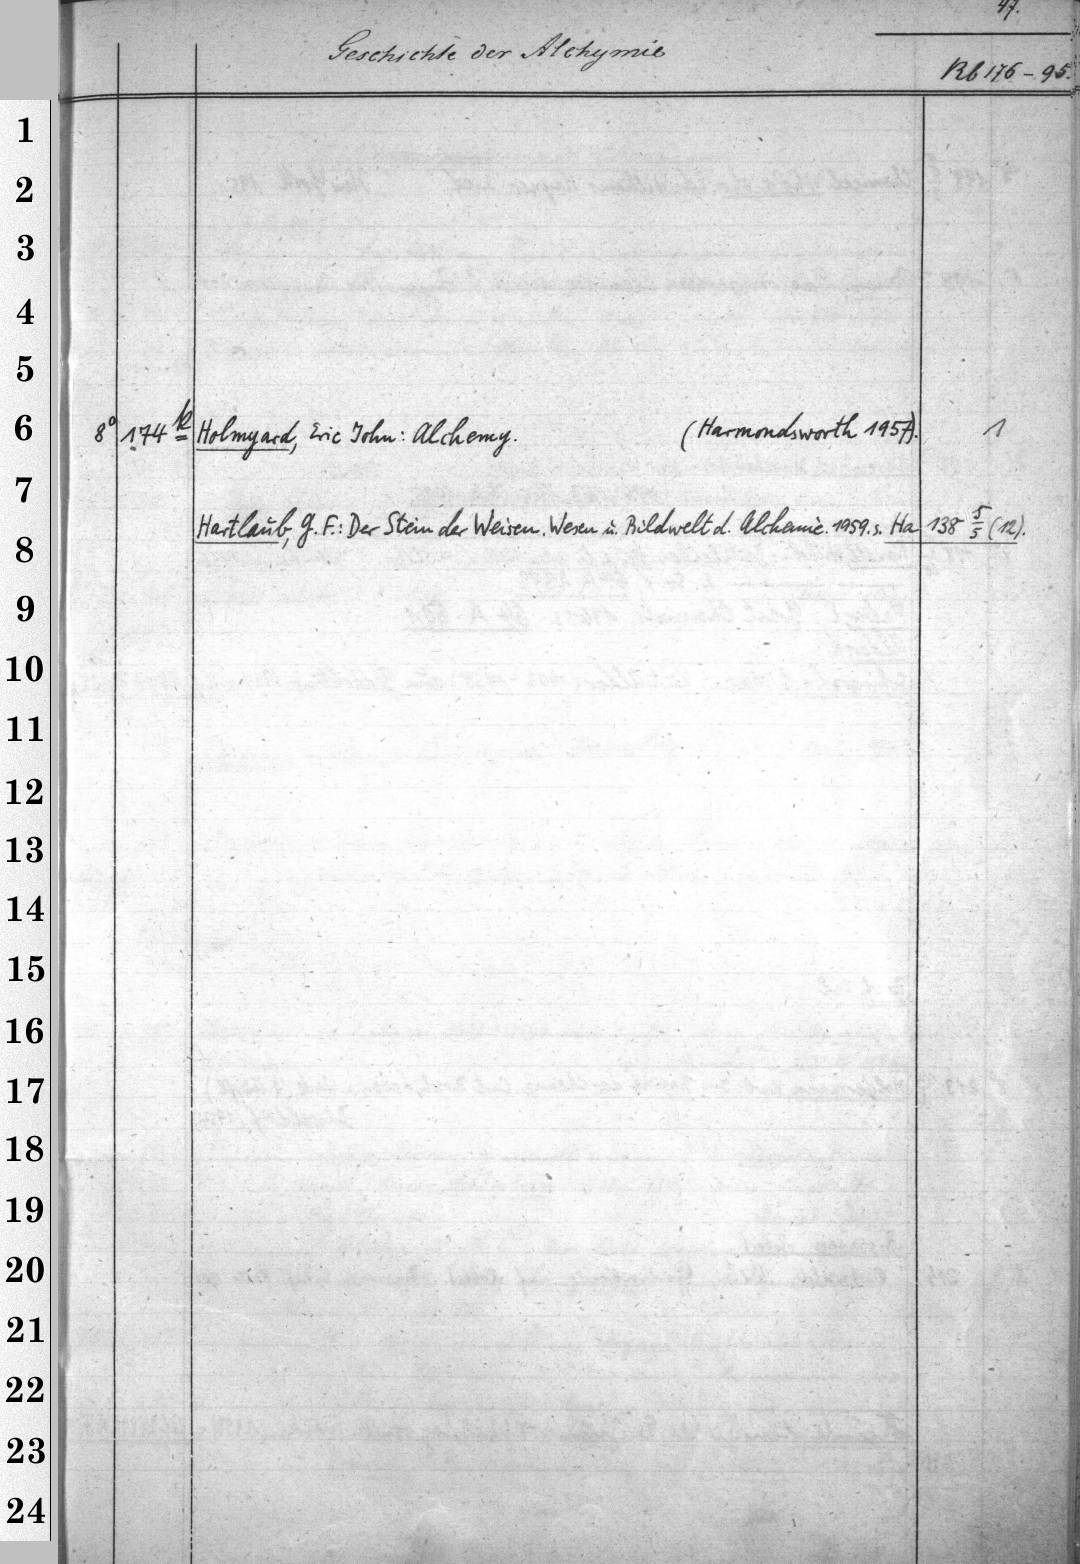 47.
Geschichte der Alchymie
Rb 176-95.
1
2
3
4
5
6
8° 174 k Holmyard, Eric John: Alchemy. (Harmondsworth 1957). 1
7
Hartlaub, G. F.: Der Stein der Weisen. Wesen u. Bildwelt d. Alchemie. 1959. s. Ha 138 5/5 (12).
8
9
10
11
12
13
14
15
16
17
18
19
20
21
22
23
24